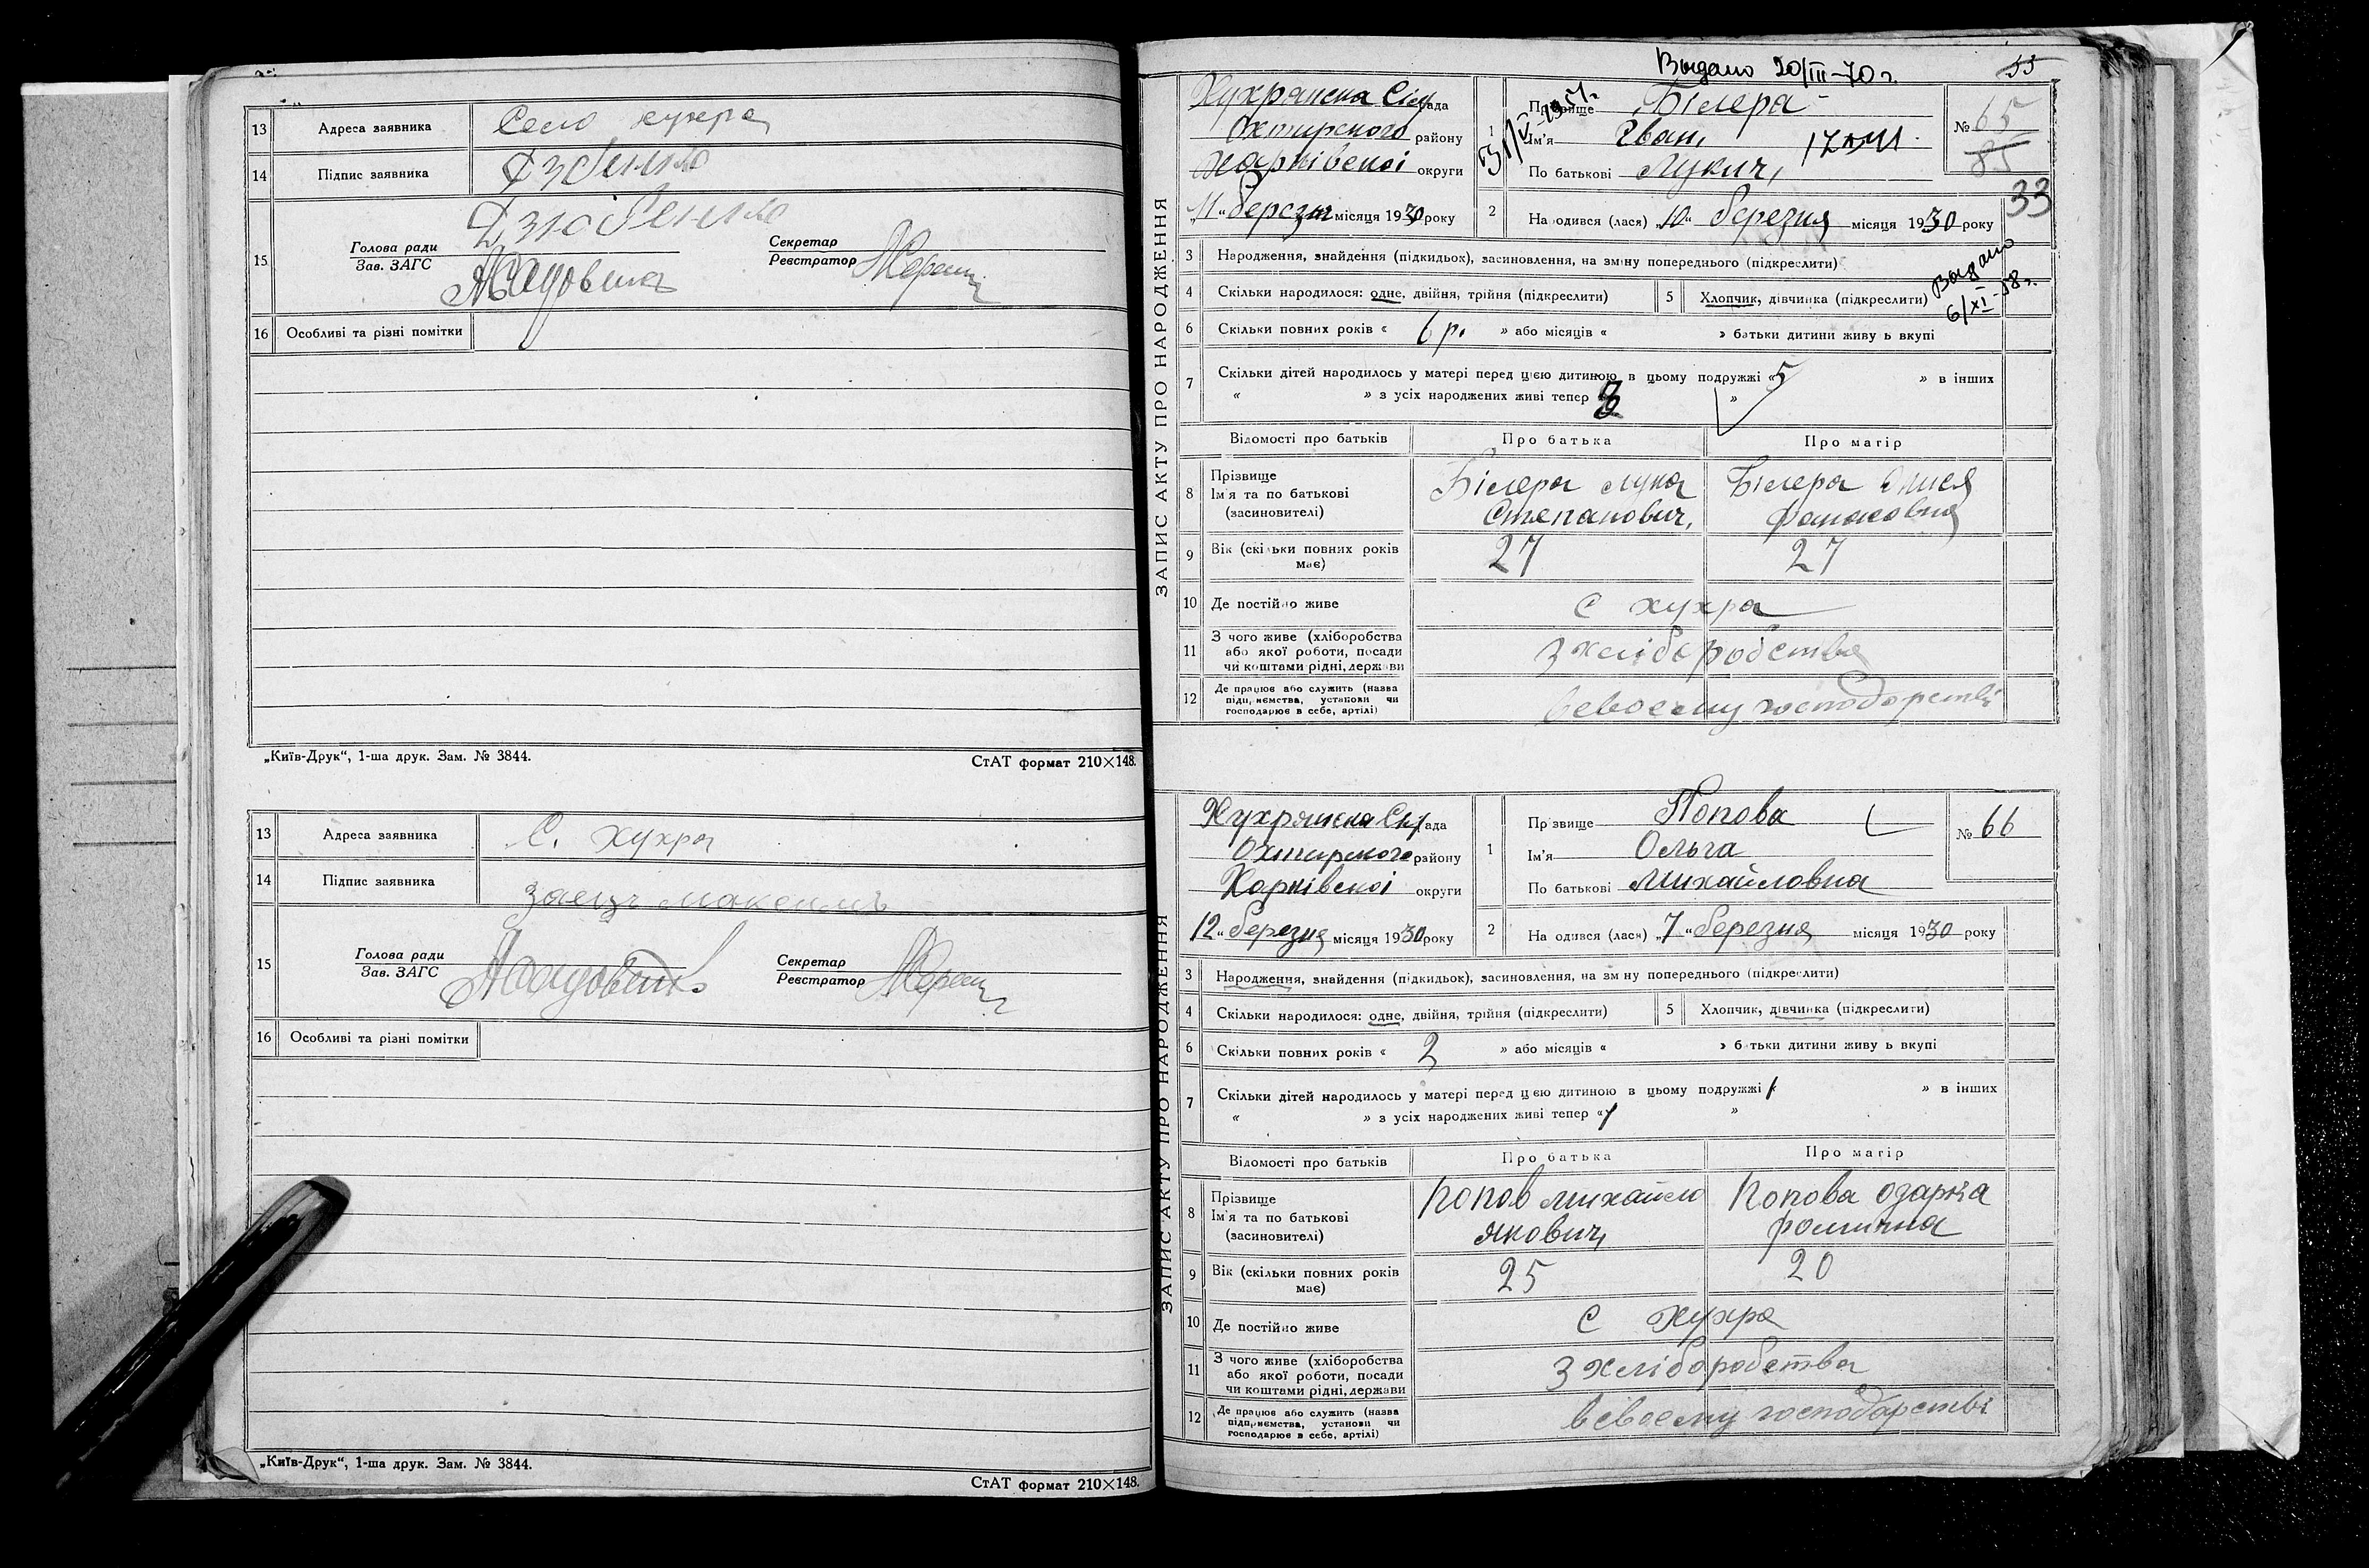 13 Адреса заявника Село хухра
14 Підпис заявника
15 Голова ради
Зав. ЗАГС
Секретар
Реєстратор
16 Особливі та різні помітки
„Київ-Друк“, 1-ша друк. Зам. № 3844.
СтАТ формат 210×148.
13 Адреса заявника С. хухра
14 Підпис заявника Заєць
15 Голова ради
Зав. ЗАГС
Секретар
Реєстратор
16 Особливі та різні помітки
„Київ-Друк“, 1-ша друк. Зам. № 3844.
СтАТ формат 210×148.
Выдано 20/III-70 г.
55
ЗАПИС АКТУ ПРО НАРОДЖЕННЯ
Хухрянска Сільрада
Охтирского району
Харківскоі округи
„11“ березня місяця 1930 року
1 Прізвище Білера
Ім'я Іван,
По батькові Лукич,
№ 65
85
33
2 На одився (лася) „10“ березня місяця 1930 року
3 Народження, знайдення (підкидьок), засиновлення, на зміну попереднього (підкреслити)
Выдано
6/XI-58 г.
4 Скільки народилося: одне, двійня, трійня (підкреслити)
5 Хлопчик, дівчинка (підкреслити)
6 Скільки повних років « 6 р. » або місяців « » батьки дитини живу ь вкупі
7 Скільки дітей народилось у матері перед цією дитиною в цьому подружжі «5 » в інших
« » з усіх народжених живі тепер « 3 »
Відомості про батьків Про батька Про матір
8 Прізвище
Ім'я та по батькові
(засиновителі)
Білера Лука
Степанович,
Білера Онися
9 Вік (скільки повних років
має)
27 27
10 Де постійно живе с хухра
11 З чого живе (хліборобства
або якої роботи, посади
чи коштами рідні, держави
З хліборобства
12 Де працює або служить (назва
підприємства, установи чи
господарює в себе, артілі)
всвоєму господарстві
ЗАПИС АКТУ ПРО НАРОДЖЕННЯ
Хухрянска Сілрада
Охтирского району
Харківскоі округи
„12“ березня місяця 1930 року
1 Прізвище Попова
Ім'я Ольга
По батькові Михайловна
№ 66
2 На одився (лася) „7“ березня місяця 1930 року
3 Народження, знайдення (підкидьок), засиновлення, на зміну попереднього (підкреслити)
4 Скільки народилося: одне, двійня, трійня (підкреслити)
5 Хлопчик, дівчинка (підкреслити)
6 Скільки повних років « 2 » або місяців « » батьки дитини живу ь вкупі
7 Скільки дітей народилось у матері перед цією дитиною в цьому подружжі «1 » в інших
« » з усіх народжених живі тепер «1 »
Відомості про батьків Про батька Про матір
8 Прізвище
Ім'я та по батькові
(засиновителі)
Попов Михайло
Якович,
Попова Одарка
Фомична
9 Вік (скільки повних років
має)
25 20
10 Де постійно живе с Хухра
11 З чого живе (хліборобства
або якої роботи, посади
чи коштами рідні, держави
З хліборобства
12 Де працює або служить (назва
підприємства, установи чи
господарює в себе, артілі)
всвоєму господарстві